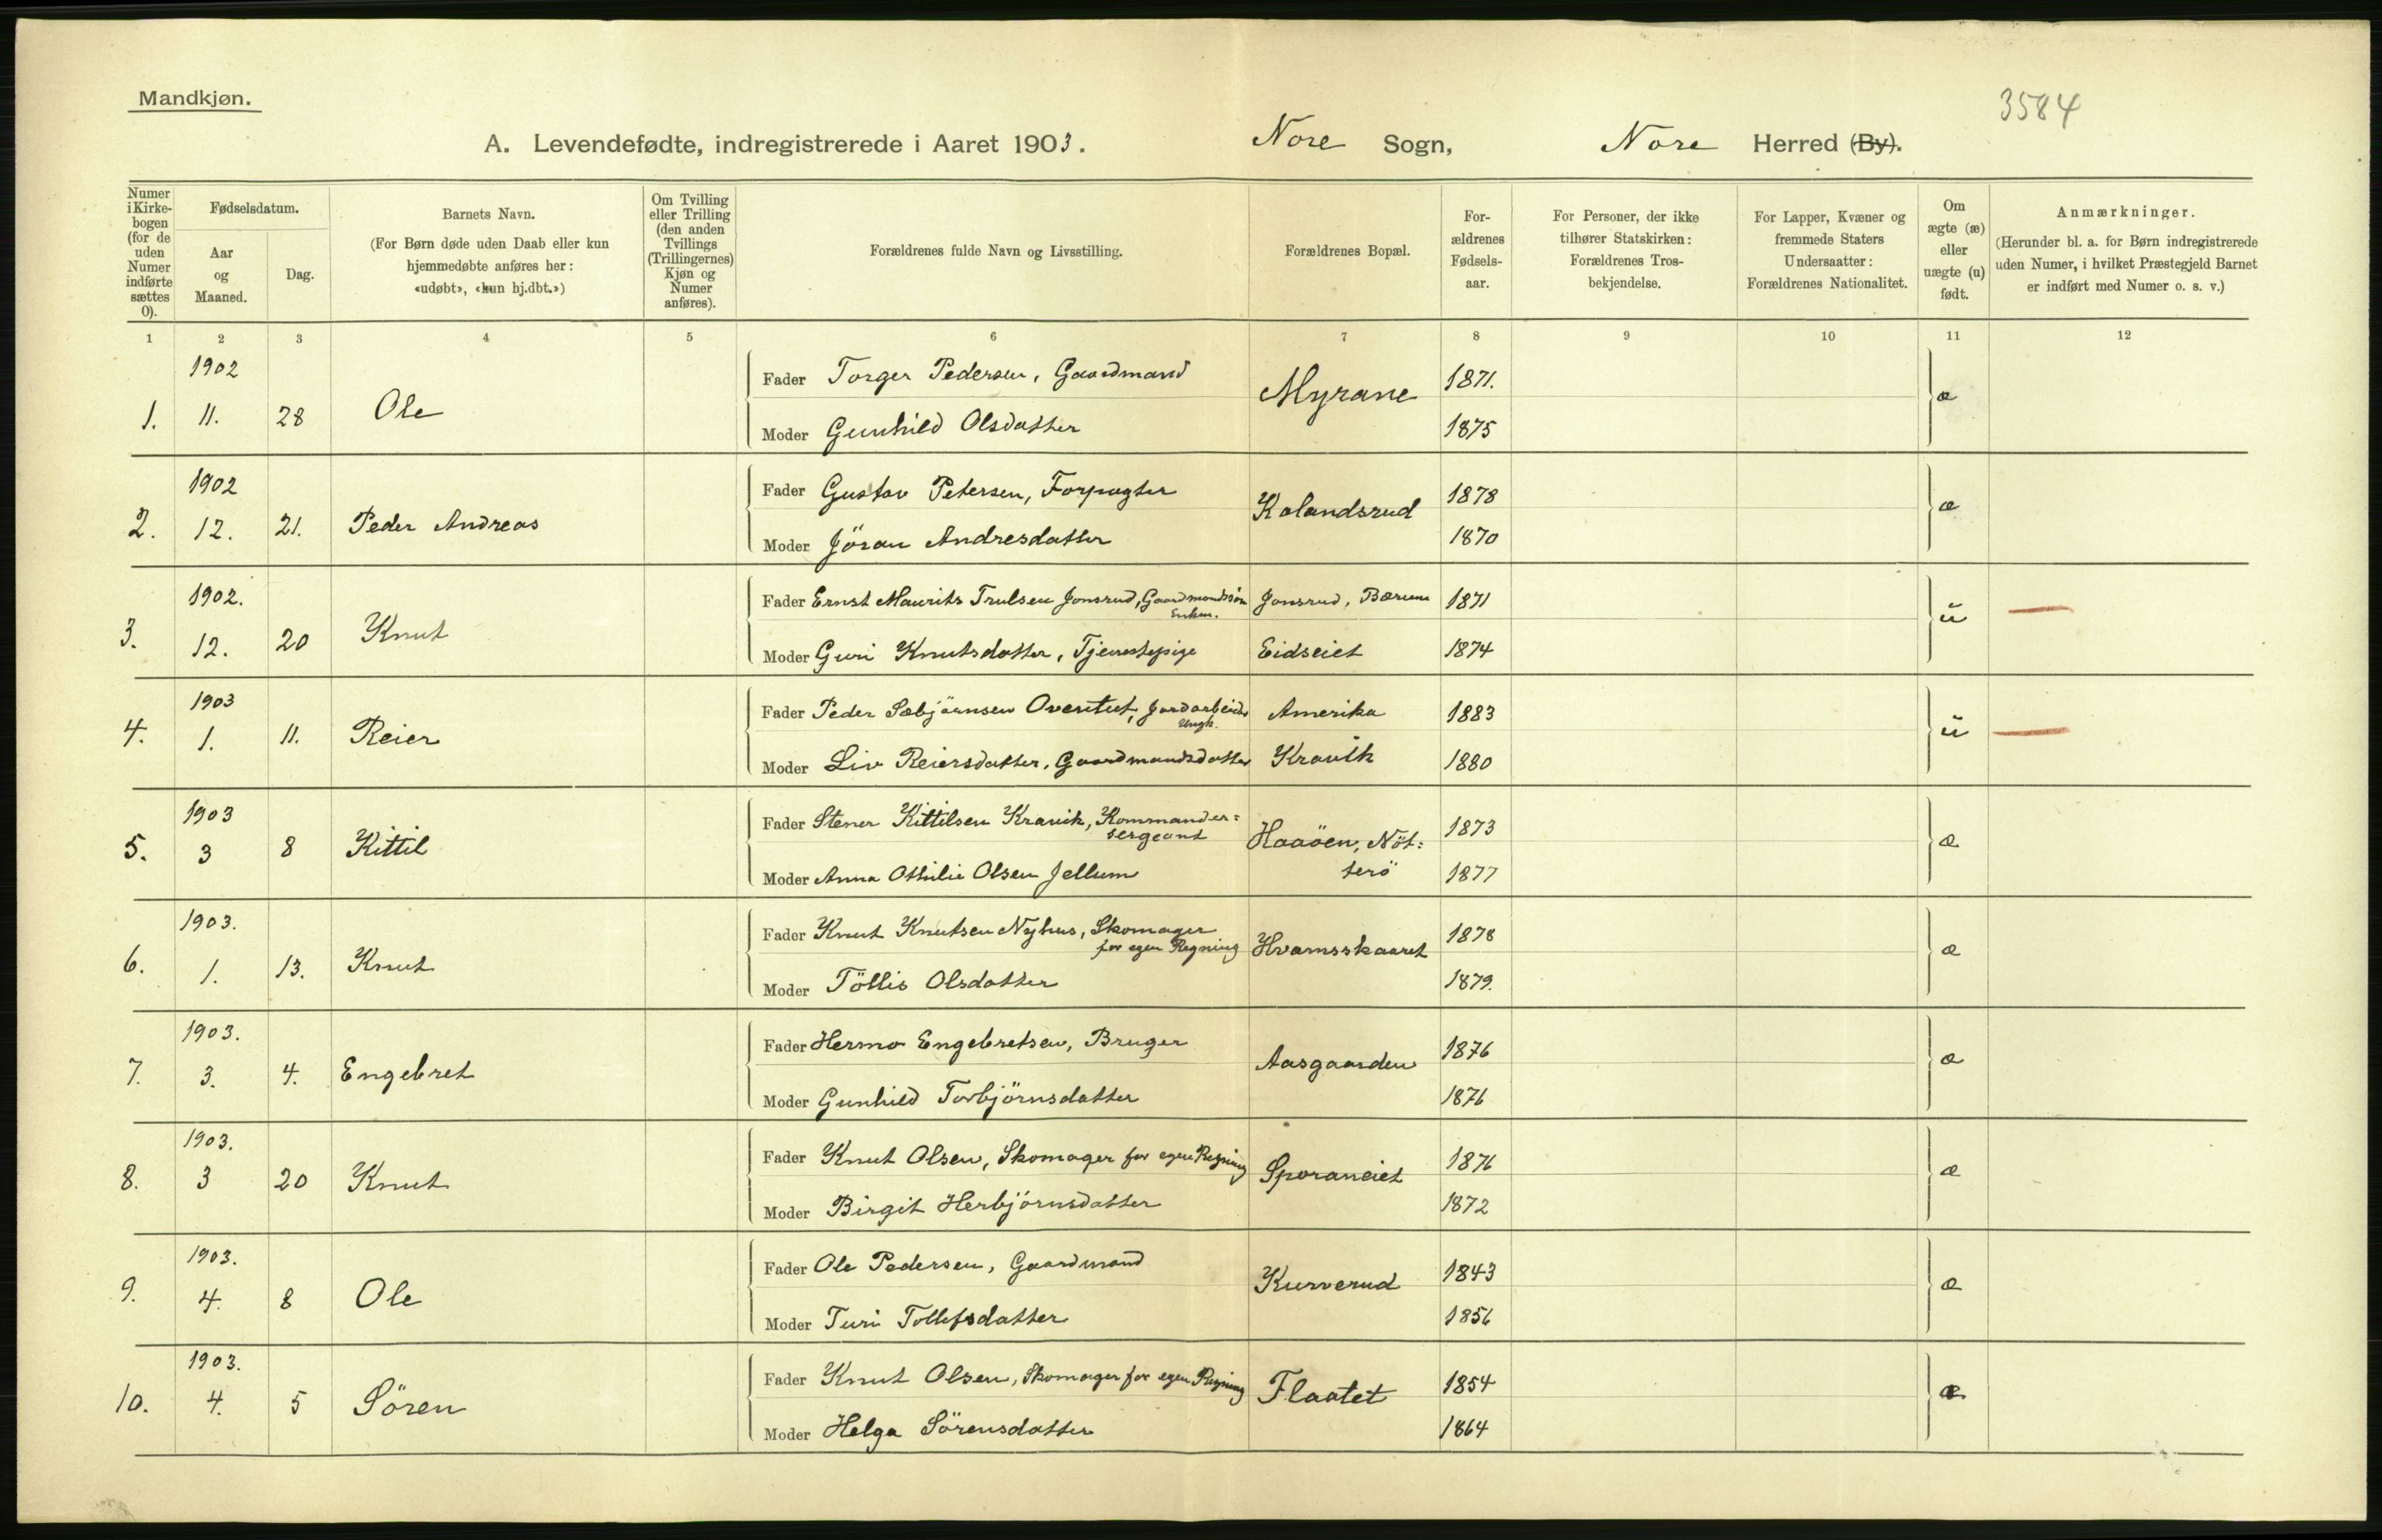 Mandkjøn.
3584
A. Levendefødte, indregistrerede i Aaret 1903.
Nore Sogn, Nore Herred (By).
Numer i Kirke-bogen (for de uden Numer indførte sættes 0).
Fødselsdatum.
Aar og Maaned.
Dag.
Barnets Navn.
(For Børn døde uden Daab eller kun hjemmedøbte anføres her: «udøbt», «kun hj.dbt.»)
Om Tvilling eller Trilling (den anden Tvillings (Trillingernes) Kjøn og Numer anføres).
Forældrenes fulde Navn og Livsstilling.
Forældrenes Bopæl.
For-ældrenes Fødsels-aar.
For Personer, der ikke tilhører Statskirken: Forældrenes Tros-bekjendelse.
For Lapper, Kvæner og fremmede Staters Undersaatter: Forældrenes Nationalitet.
Om ægte (æ) eller uægte (u) født.
Anmærkninger.
(Herunder bl. a. for Børn indregistrerede uden Numer, i hvilket Præstegjeld Barnet er indført med Numer o. s. v.)
1 2 3 4 5 6 7 8 9 10 11 12
1902
1. 11. 28 Ole
Fader Torger Pedersen, Gaardmand Myrane 1871. æ
Moder Gunhild Olsdatter 1875
1902
2. 12. 21. Peder Andreas
Fader Gustav Petersen, Forpagter Kolandsrud 1878 æ
Moder Jöran Andresdatter 1870
1902.
3. 12. 20 Knut
Fader Ernst Maurits Trulsen Jonsrud, Gaardmandssön Jonsrud, Bærum 1871 u
Enkem.
Moder Guri Knutsdatter, Tjenestepige Eidseiet 1874
1903
4. 1. 11. Reier
Fader Peder Sebjörnsen Overtut, Jordarbeider Amerika 1883 u
Ungk.
Moder Liv Reiersdatter, Gaardmandsdatter Kravik 1880
1903
5. 3 8 Kittil
Fader Stener Kittilsen Kravik, Kommander-sergeant Haaöen, Nöt-terö 1873 æ
Moder Anna Othilie Olsen Jellum 1877
1903.
6. 1. 13. Knut
Fader Knut Knutsen Nyhus, Skomager for egen Regning Hvamsskaaret 1878 æ
Moder Töllis Olsdatter 1879.
1903.
7. 3. 4. Engebret
Fader Hermo Engebretsen, Bruger Aasgaarden 1876 æ
Moder Gunhild Torbjörnsdatter 1876
1903.
8. 3 20 Knut
Fader Knut Olsen, Skomager for egen Regning Sporaneiet 1876 æ
Moder Birgit Herbjörnsdatter 1872
1903.
9. 4. 8 Ole
Fader Ole Pedersen, Gaardmand Kurverud 1843 æ
Moder Turi Tollefsdatter 1856
1903.
10. 4. 5 Sören
Fader Knut Olsen, Skomager for egen Regning Flaatet 1854 æ
Moder Helga Sörensdatter 1864